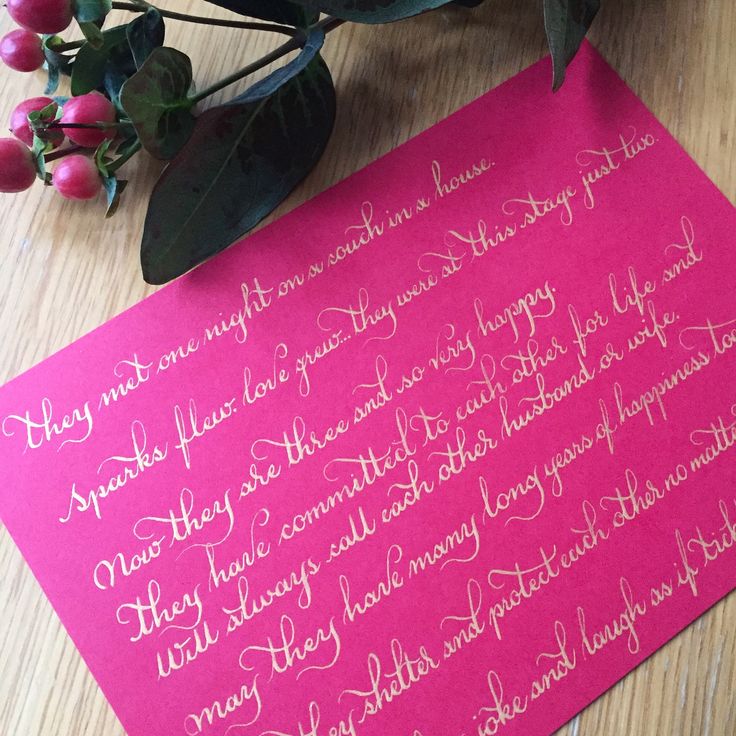 They met one night on a couch in a house.
Sparks flew. love grew... they were at this stage just two.
Now they are three and so very happy.
They have committed to each other for life and
Will always call each other husband or wife.
May they have many long years of happiness too
they shelter and protect each other no matte
joke and laugh as if